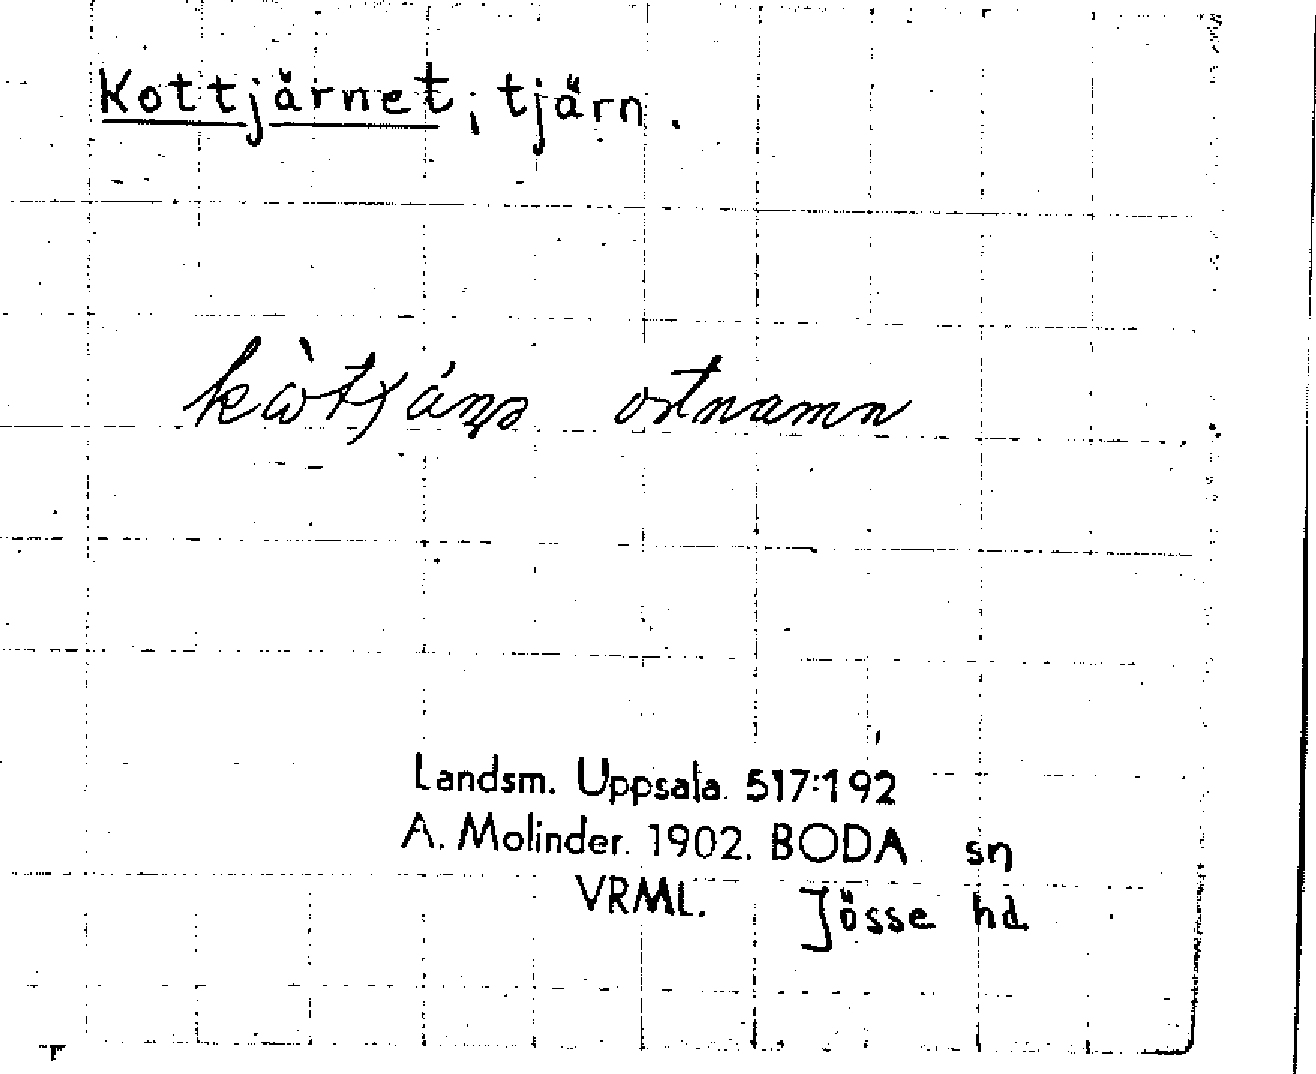 Kottjärnet, tjärn.
ortnamn
Landsm. Uppsala 517:192
A. Molinder. 1902. BODA sn
VRML. Jösse hd